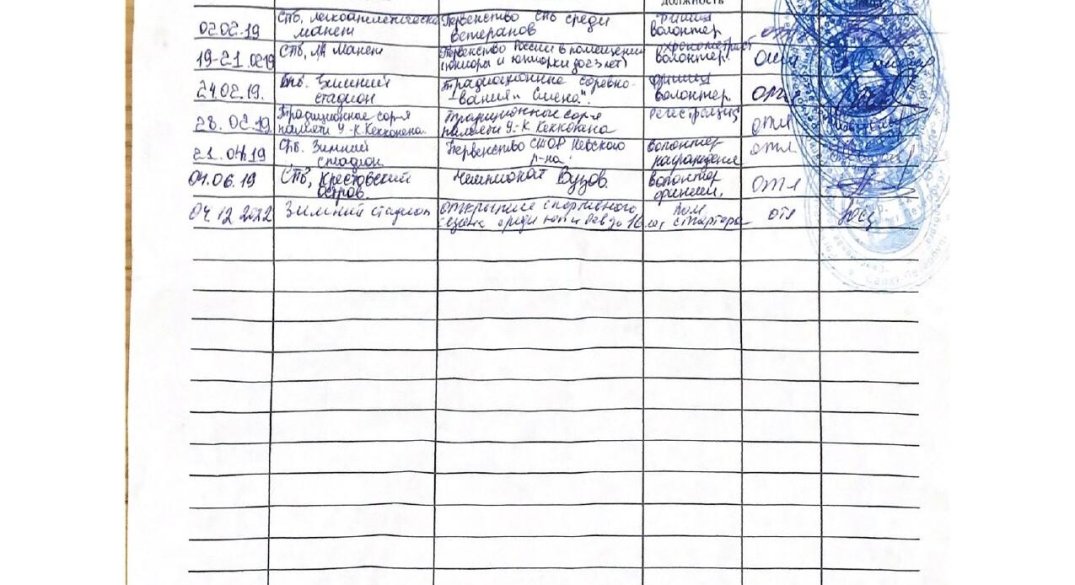 должность
02.02.19 СПб, легкоатлетический манеж Первенство СПб среди ветеранов финиш волонтер отл
19-21.02.19 СПб, ЛА Манеж Первенство России в помещении (юниоры и юниорки до 23 лет) хронометрист волонтер отл
24.02.19. Спб. Зимний стадион Традиционные соревнования "Смена". финиш волонтер. отл
28.02.19 Традиционное сор-я памяти У-К Кекконена Традиционное сор-я памяти У-К Кекконена отл
21.04.19 СПб. Зимний стадион Первенство СШОР Невского р-на. волонтер награждение отл
01.06.19 СПб, Крестовский остров. Чемпионат Вузов. волонтер финиш. отл
04 12 2022 Зимний стадион открытие спортивного сезона среди юн и дев до 16 лет пом стартера отл